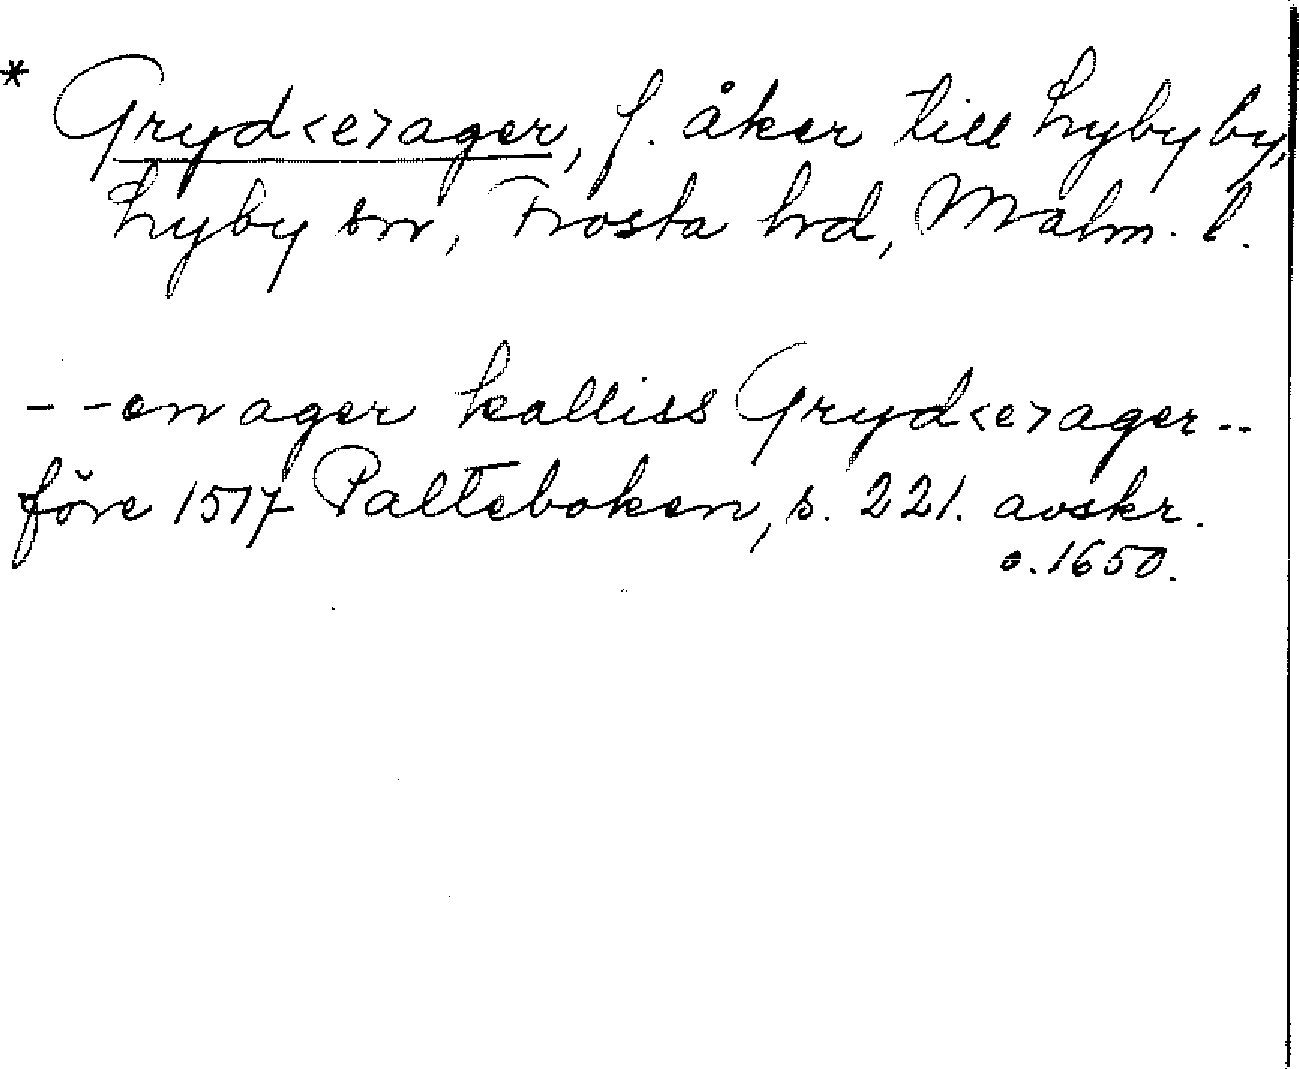 * Gryd<e>ager, f. åker till Lyby by,
Lyby sn, Frosta hd, Malm. l.
- - en ager kalliss Gryd<e>ager - -
före 1517 Palteboken, s. 221. avskr.
o. 1650.